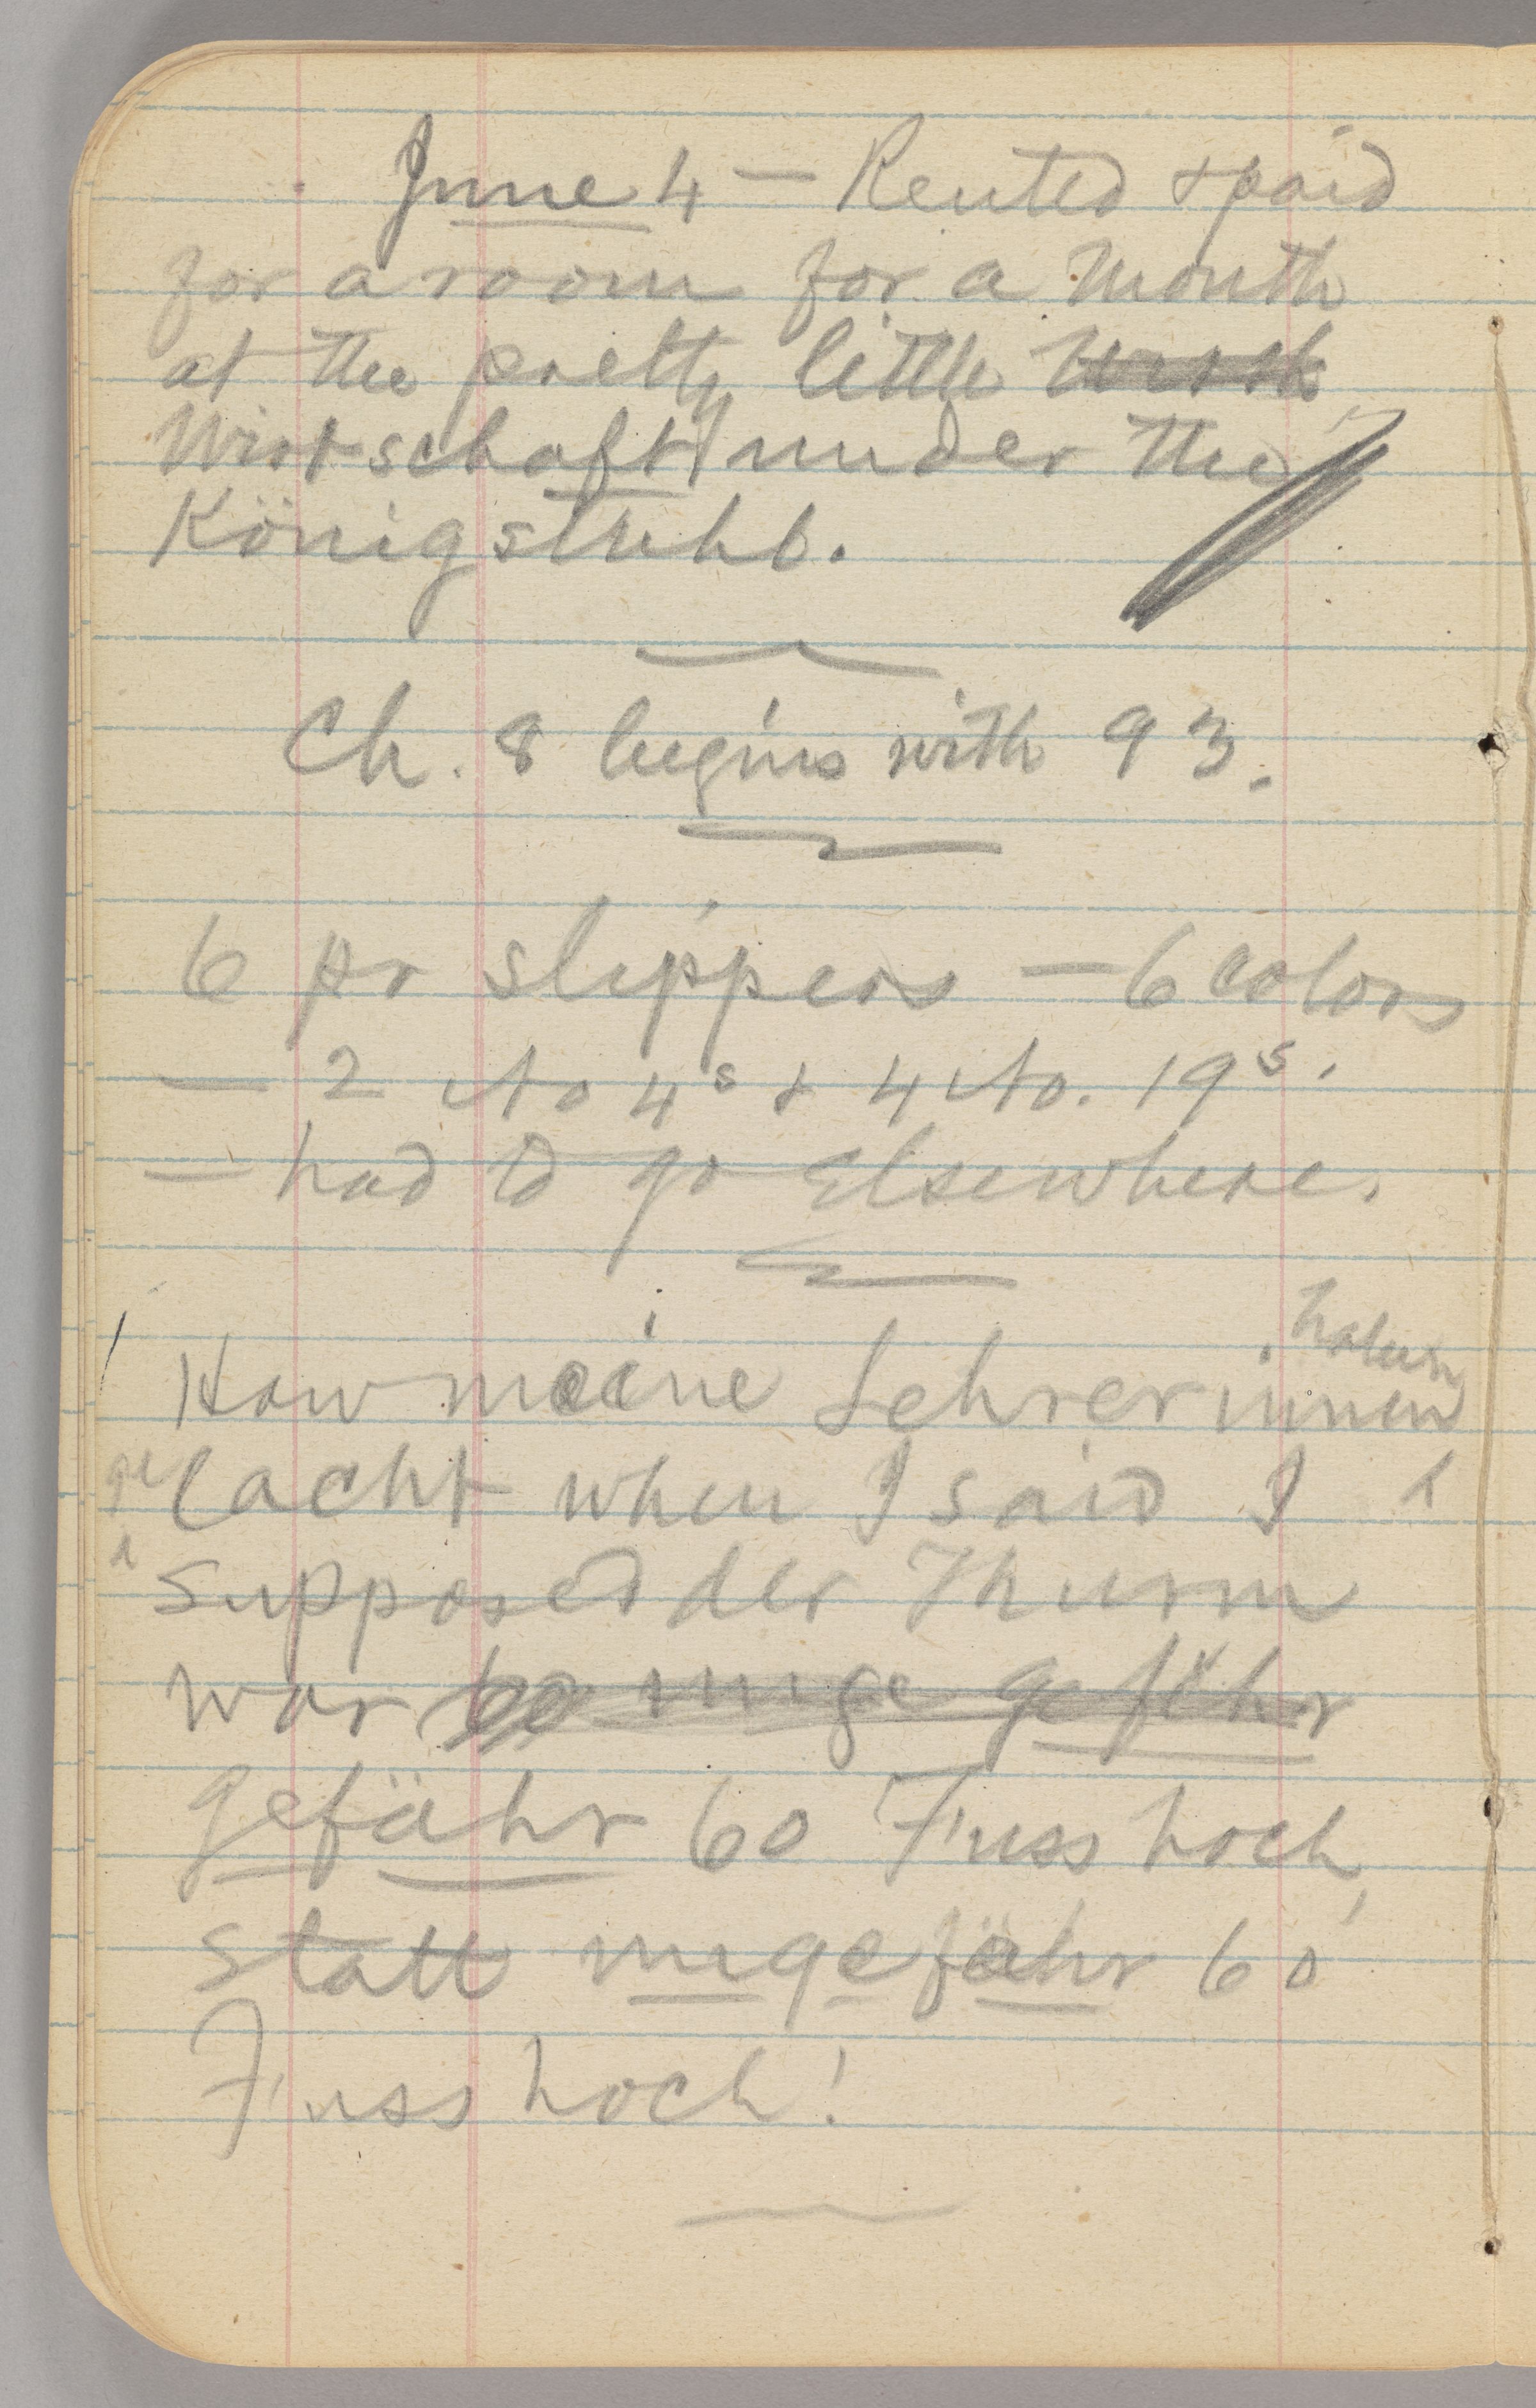 June 4 — Rented & paid
for a room for a month
at the pretty little
Wirtschaft under the
Königstuhl.
Ch. 8 begins with 93.
6 pr slippers — 6 colors
— 2 No 4s & 4 No. 19s.
— had to go elsewhere.
haben
How meine Lehrerinnen
gelacht when I said I
supposed der Thurm
war 60 unge gefähr
gefähr 60 Fuss hoch,
statt ungefähr 60
Fuss hoch!